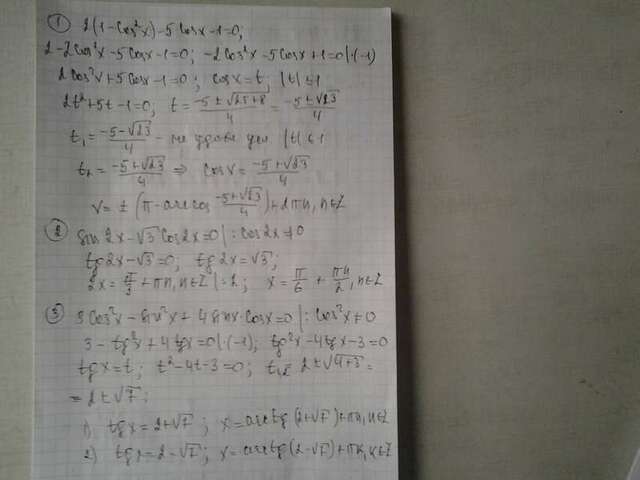 ① 2(1-cos²x)-5cosx-1=0;
2-2cos²x-5cosx-1=0; -2cos²x-5cosx+1=0|·(-1)
2cos²x+5cosx-1=0; cosx=t, |t|≤1
2t²+5t-1=0; t=(-5±√(25+8))/4=(-5±√23)/4
t₁=(-5-√23)/4 - не удовл усл |t|≤1
t₂=(-5+√23)/4 ⇒ cosx=(-5+√23)/4
x=±(π-arccos (-5+√23)/4)+2πn, n∈Z
② sin2x-√3cos2x=0|:cos2x≠0
tg2x-√3=0; tg2x=√3;
2x=π/3+πn, n∈Z|:2; x=π/6+πn/2, n∈Z
③ 3cos²x-sin²x+4sinx·cosx=0|:cos²x≠0
3-tg²x+4tgx=0|·(-1); tg²x-4tgx-3=0
tgx=t; t²-4t-3=0; t₁,₂=2±√(4+3)=
=2±√7;
1) tgx=2+√7; x=arctg(2+√7)+πn, n∈Z
2) tgx=2-√7; x=arctg(2-√7)+πk, k∈Z